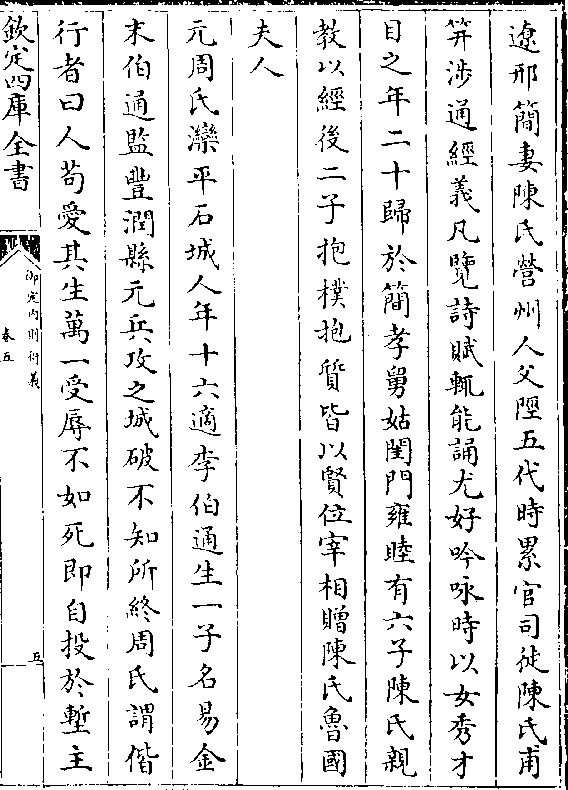 遼邢簡妻陳氏營州人父陘五代時累官司徒陳氏甫
笄涉通經義凡覽詩賦輒能誦尤好吟咏時以女秀才
目之年二十歸於簡孝舅姑閨門雍睦有六子陳氏親
教以經後二子抱樸抱質皆以賢位宰相贈陳氏魯國
夫人
元周氏灤平石城人年十六適李伯通生一子名易金
末伯通監豐潤縣元兵攻之城破不知所終周氏謂偕
行者曰人苟愛其生萬一受辱不如死即自投於塹主
欽定四庫全書
御定內則衍義
卷五
五